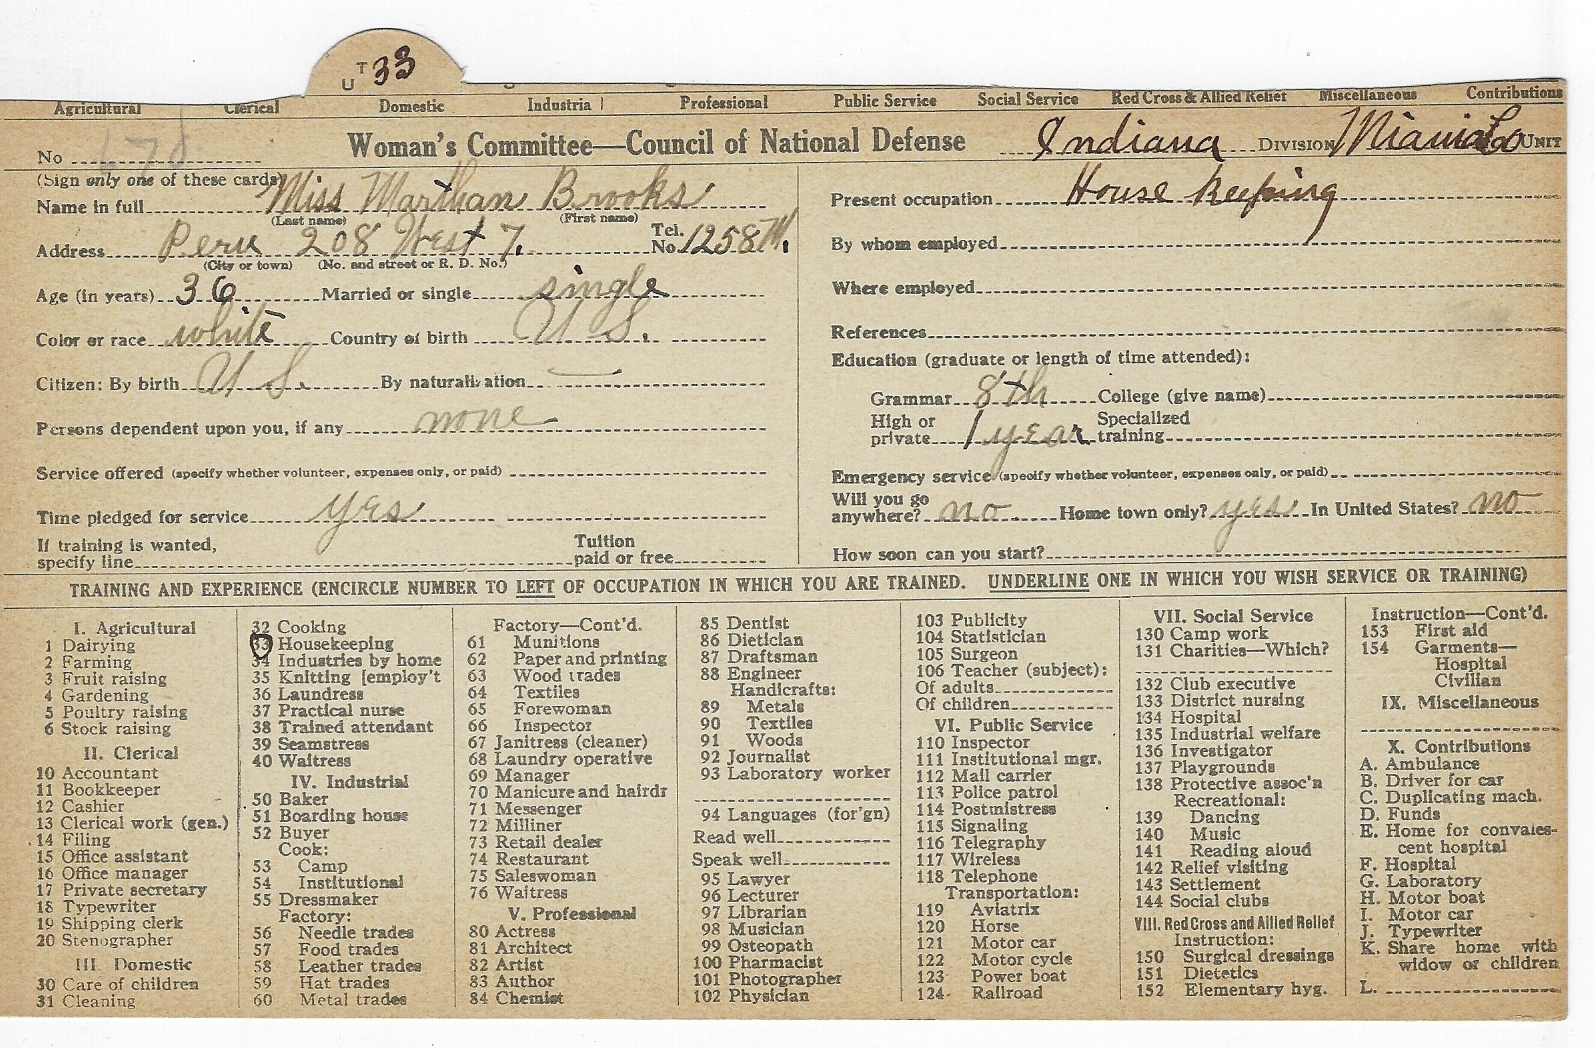 U T 33
Agricultural Clerical Domestic Industrial Professional Public Service Social Service Red Cross & Allied Relief Miscellaneous Contributions
No
Woman's Committee—Council of National Defense Indiana DIVISION Miami Co UNIT
(Sign only one of these cards)
Name in full Miss Marthan Brooks
(Last name) (First name)
Address Peru 208 West 7. Tel. No. 1258
(City or town) (No. and street or R. D. No.)
Age (in years) 36 Married or single single
Color or race white Country of birth U S.
Citizen: By birth U S. By naturalization —
Persons dependent upon you, if any none
Service offered (specify whether volunteer, expenses only, or paid)
Time pledged for service yes
If training is wanted, specify line Tuition paid or free
Present occupation House Keeping
By whom employed
Where employed
References
Education (graduate or length of time attended):
Grammar 8th College (give name)
High or private 1 year Specialized training
Emergency service (specify whether volunteer, expenses only, or paid)
Will you go anywhere? no Home town only? yes In United States? no
How soon can you start?
TRAINING AND EXPERIENCE (ENCIRCLE NUMBER TO LEFT OF OCCUPATION IN WHICH YOU ARE TRAINED. UNDERLINE ONE IN WHICH YOU WISH SERVICE OR TRAINING)
I. Agricultural
1 Dairying
2 Farming
3 Fruit raising
4 Gardening
5 Poultry raising
6 Stock raising
II. Clerical
10 Accountant
11 Bookkeeper
12 Cashier
13 Clerical work (gen.)
14 Filing
15 Office assistant
16 Office manager
17 Private secretary
18 Typewriter
19 Shipping clerk
20 Stenographer
III Domestic
30 Care of children
31 Cleaning
32 Cooking
33 Housekeeping
34 Industries by home
35 Knitting [employ't
36 Laundress
37 Practical nurse
38 Trained attendant
39 Seamstress
40 Waitress
IV. Industrial
50 Baker
51 Boarding house
52 Buyer
Cook:
53 Camp
54 Institutional
55 Dressmaker
Factory:
56 Needle trades
57 Food trades
58 Leather trades
59 Hat trades
60 Metal trades
Factory—Cont'd.
61 Munitions
62 Paper and printing
63 Wood trades
64 Textiles
65 Forewoman
66 Inspector
67 Janitress (cleaner)
68 Laundry operative
69 Manager
70 Manicure and hairdr
71 Messenger
72 Milliner
73 Retail dealer
74 Restaurant
75 Saleswoman
76 Waitress
V. Professional
80 Actress
81 Architect
82 Artist
83 Author
84 Chemist
85 Dentist
86 Dietician
87 Draftsman
88 Engineer
Handicrafts:
89 Metals
90 Textiles
91 Woods
92 Journalist
93 Laboratory worker
94 Languages (for'gn)
Read well
Speak well
95 Lawyer
96 Lecturer
97 Librarian
98 Musician
99 Osteopath
100 Pharmacist
101 Photographer
102 Physician
103 Publicity
104 Statistician
105 Surgeon
106 Teacher (subject):
Of adults
Of children
VI. Public Service
110 Inspector
111 Institutional mgr.
112 Mail carrier
113 Police patrol
114 Postmistress
115 Signaling
116 Telegraphy
117 Wireless
118 Telephone
Transportation:
119 Aviatrix
120 Horse
121 Motor car
122 Motor cycle
123 Power boat
124 Railroad
VII. Social Service
130 Camp work
131 Charities—Which?
132 Club executive
133 District nursing
134 Hospital
135 Industrial welfare
136 Investigator
137 Playgrounds
138 Protective assoc'n
Recreational:
139 Dancing
140 Music
141 Reading aloud
142 Relief visiting
143 Settlement
144 Social clubs
VIII. Red Cross and Allied Relief
Instruction:
150 Surgical dressings
151 Dietetics
152 Elementary hyg.
Instruction—Cont'd.
153 First aid
154 Garments—
Hospital
Civilian
IX. Miscellaneous
X. Contributions
A. Ambulance
B. Driver for car
C. Duplicating mach.
D. Funds
E. Home for convalescent hospital
F. Hospital
G. Laboratory
H. Motor boat
I. Motor car
J. Typewriter
K. Share home with
widow or children
L.